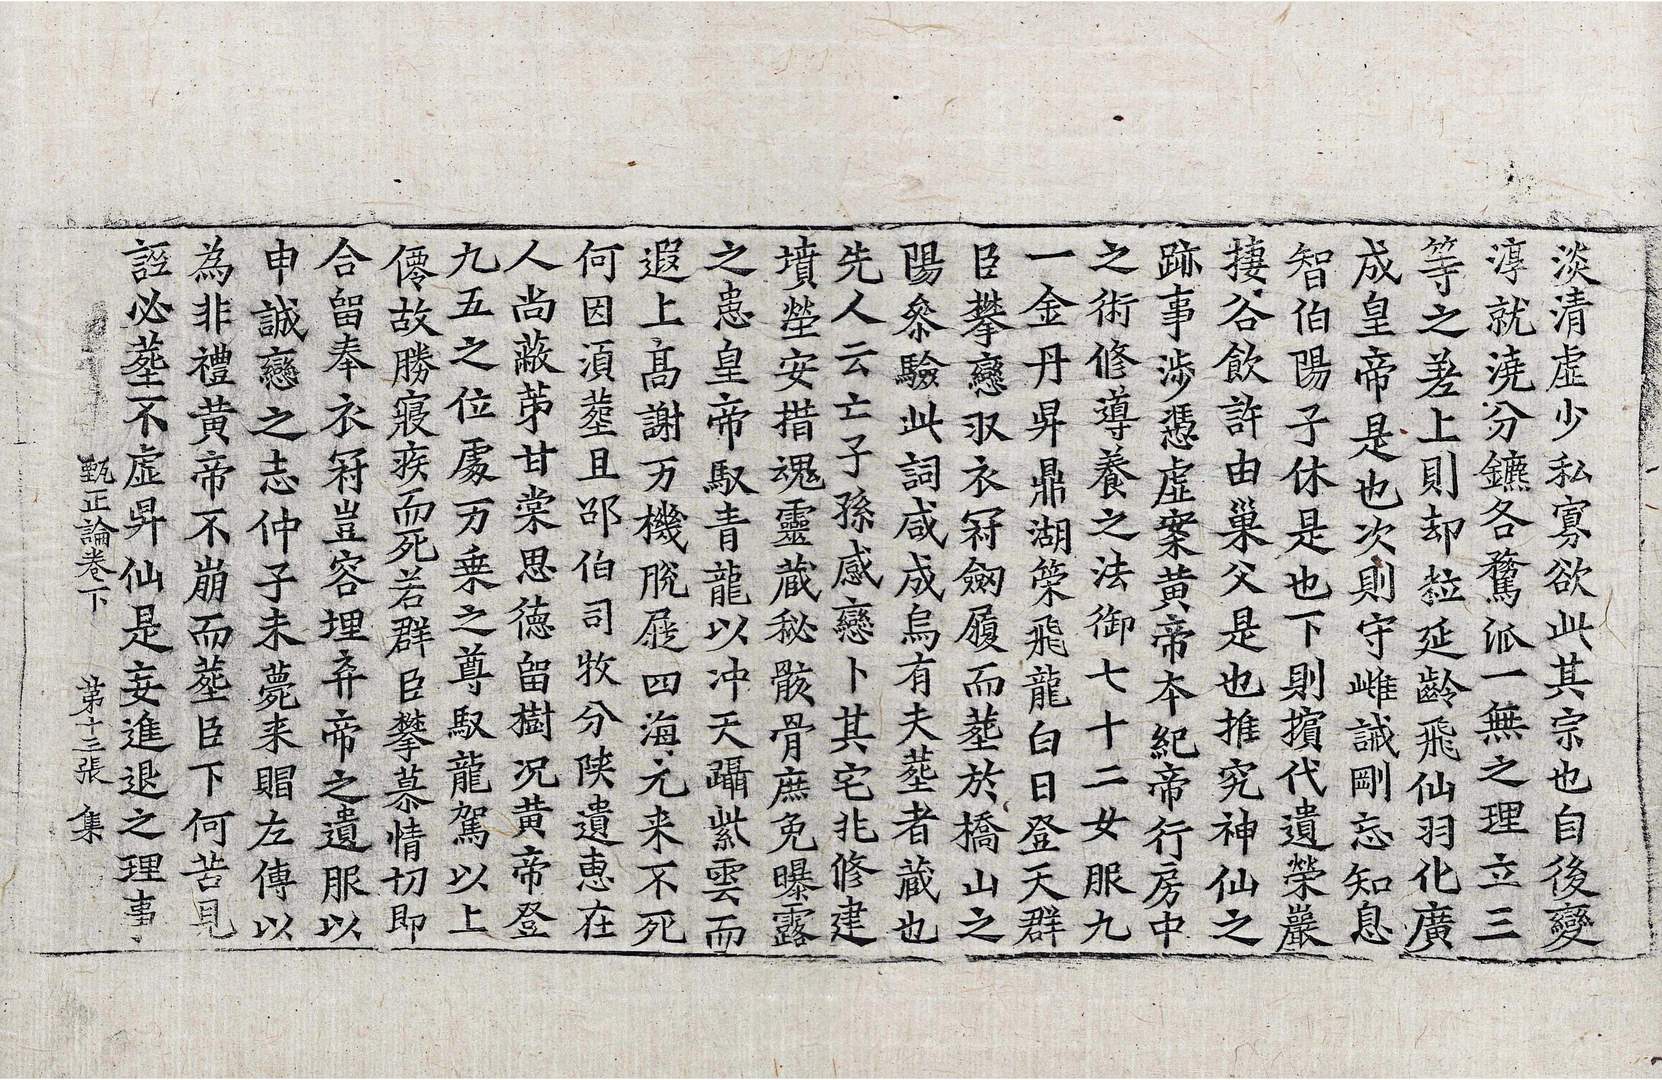 淡清虛少私寡欲此其宗也自後變
淳就澆分鑣各騖泒一無之理立三
等之差上則却粒延齡飛仙羽化廣
成皇帝是也次則守雌誡剛忘知息
智伯陽子休是也下則擯代遺榮巖
捿谷飲許由巢父是也推究神仙之
跡事渉憑虛案黄帝本紀帝行房中
之術修導養之法御七十二女服九
一金丹昇鼎湖榮飛龍白日登天群
臣攀戀収衣冠劒履而塟於橋山之
陽叅驗此詞咸成烏有夫塟者蔵也
先人云亡子孫感戀卜其宅兆修建
墳塋安措魂靈蔵秘骸骨庶免曝露
之患皇帝馭青龍以冲天躡紫雲而
遐上髙謝万機脫屣四海元来不死
何因湏塟且邵伯司牧分陕遺恵在
人尚蔽苐甘棠思徳留樹况黄帝登
九五之位處万乗之尊馭龍駕以上
僊故勝寢疾而死若群臣攀慕情切即
合留奉衣冠豈容埋弃帝之遺服以
申誠戀之志仲子未薨来賵左傳以
為非禮黄帝不崩而塟臣下何苦見
誣必塟不虛昇仙是妄進退之理事
甄正論卷下 第十三張 集